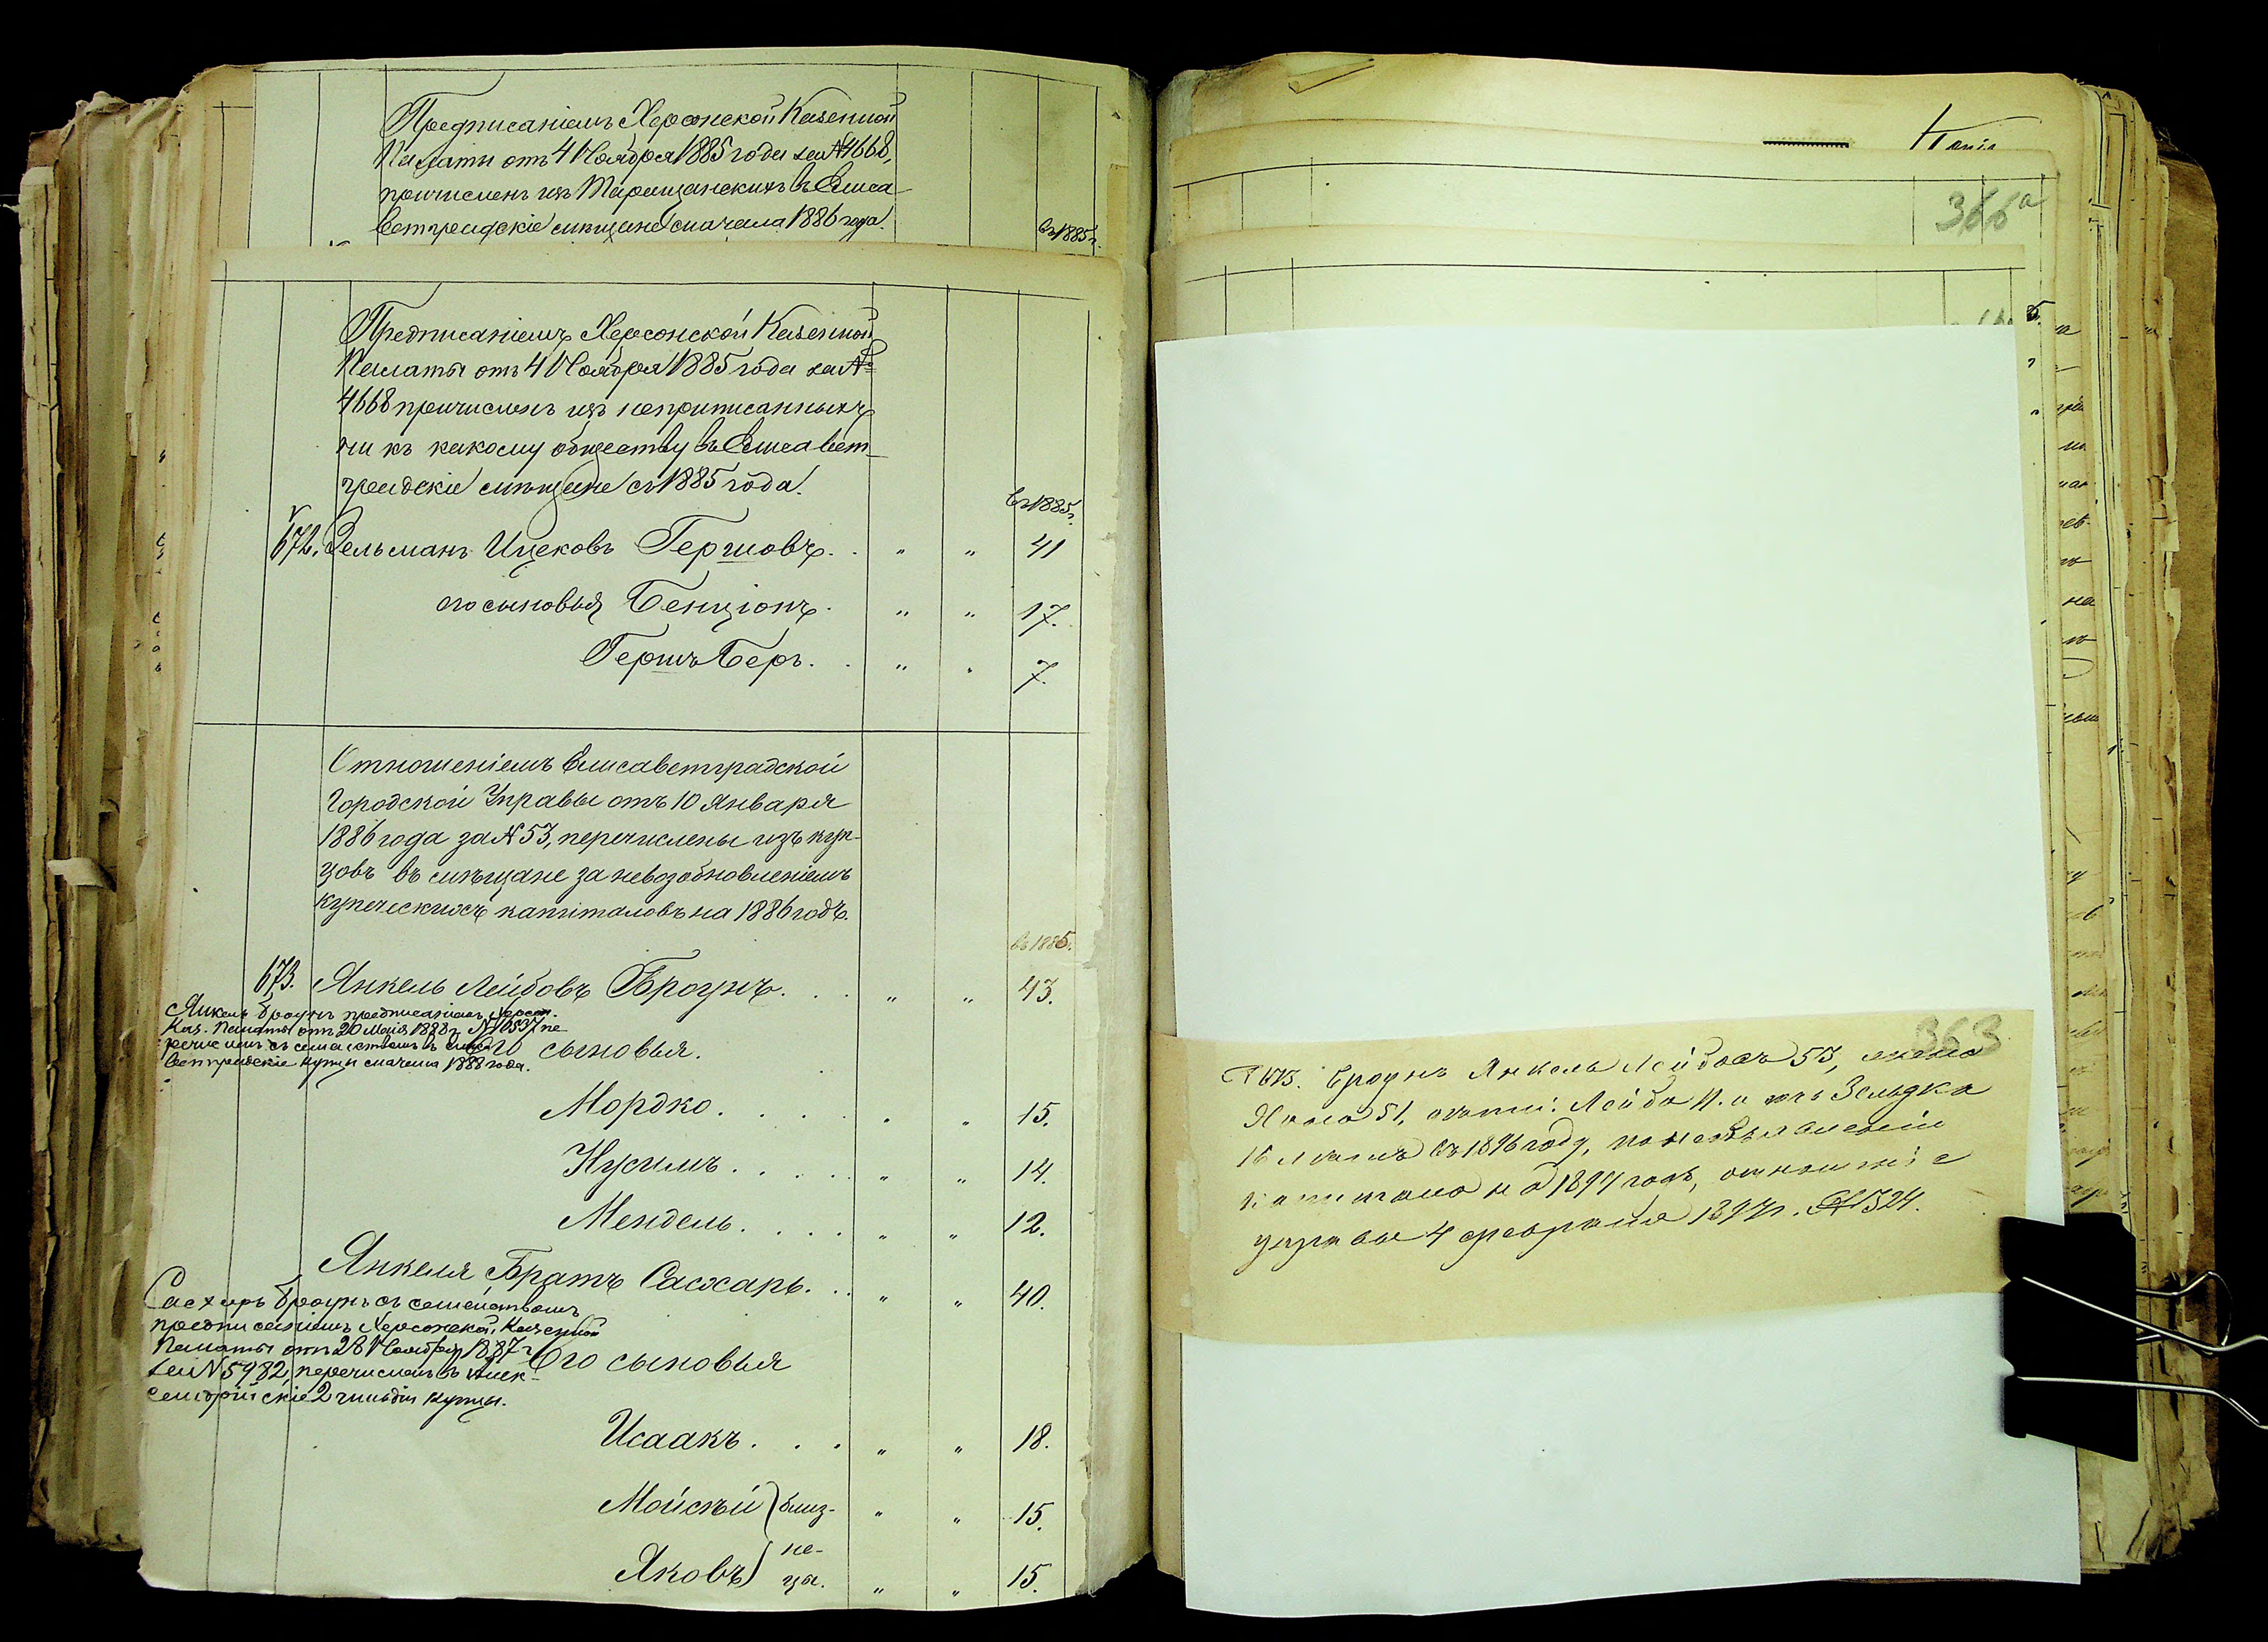 Предписаніемъ Херсонской Казенной
Палаты отъ 4 Ноября 1885 года за № 4668,
причисленъ изъ Таращанскихъ въ Елиса-
ветградскіе мѣщане сначала 1886 года.
въ 1885 г.
Предписаніемъ Херсонской Казенной
Палаты отъ 4 Ноября 1885 года за №
4668 причисленъ изъ неприписанныхъ
ни къ какому обществу въ Елисавет-
градскіе мѣщане съ 1885 года.
въ 1885 г.
672. Зельманъ Ицековъ Гершовъ. . " " 41
его сыновья Бенціонъ. " " 17.
Гершъ Беръ. . " " 7.
Отношеніемъ Елисаветградской
Городской Управы отъ 10 Января
1886 года за № 53, перечислены изъ куп-
цовъ въ мѣщане за невозобновленіемъ
купеческихъ капиталовъ на 1886 годъ.
въ 1885.
673. Янкель Лейбовъ Броунъ. . . " " 43.
Янкель Броунъ предписаніемъ Херсон.
Каз. Палаты отъ 20 Мая 1888 г. № 10537 пе-
речисленъ съ семействомъ въ Елиса-
ветградскіе купцы сначала 1888 года.
Его сыновья.
Мордко. . . . . " " 15.
Нусимъ. . . . . " " 14.
Мендель. . . . . " " 12.
Янкеля Братъ Сасхаръ. . . " " 40.
Сасхаръ Броунъ съ семействомъ
предписаніемъ Херсонской Казенной
Палаты отъ 28 Ноября 1887 г.
за № 5982, перечисленъ въ Алек-
сандрійскіе 2 гильдіи купцы.
Его сыновья
Исаакъ. . . . " " 18.
Мойсѣй } близ- " " 15.
Яковъ } не-
цы. " " 15.
366а
363
№ 673. Броунъ Янкель Лейбовъ 53, жена
Хана 51, Лейба 4. и дочь Зельдка
16 лѣтъ въ 1896 году, по необъявленіи
капитала на 1897 годъ, отношеніе
управы 4 февраля 1897 г. № 1324.